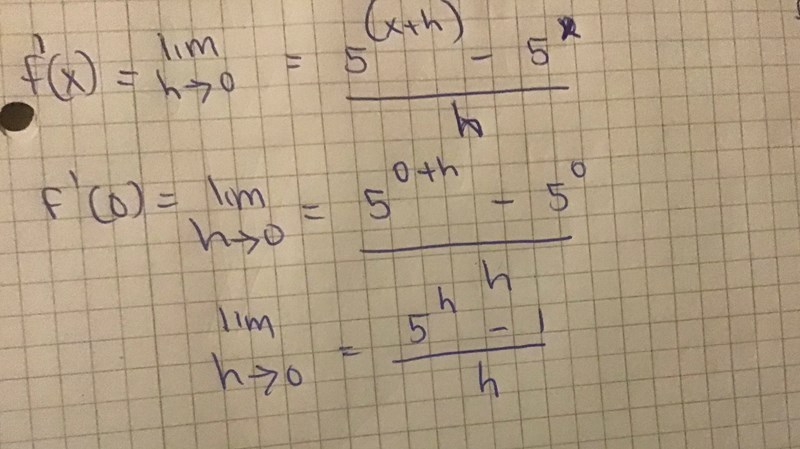 f'(x) = lim h→0 = (5^(x+h) - 5^x) / h
f'(0) = lim h→0 = (5^(0+h) - 5^0) / h
lim h→0 = (5^h - 1) / h